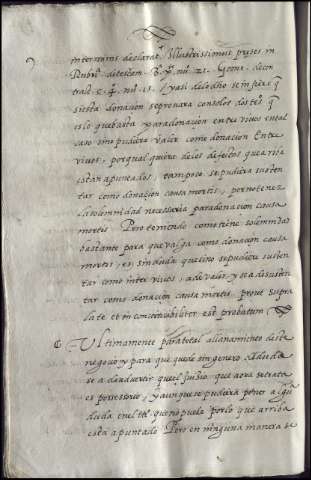 interrarns declarat. Illustrissimus preses in
Rubrᵃ de testam. 3. p. nu. 21. Gome. de con
tract. c. 4. nu. 15. / y asi de lo dho se infiere q̃
si esta donacion se provara con solos dos tesᵒˢ q̃
es lo que basta y para donacion entre vivos en tal
caso sino pudiera valer como donacion Entre
vivos, por qualquiera de los defectos que arriba
estan apuntados, tampoco se pudiera susten
tar como donacion causa mortis, por no tener
la solemnidad necessaria para donacion causa
mortis Pero teniendo como tiene solemnidad
bastante para que valga como donacion causa
mortis, es sin duda que sino se pudiere susten
tar como inter vivos, a de valer, y se a de susten
tar como donacion causa mortis prout supra
late et incontrovertibiliter est probatum
Ultimamente para total allanamiento deste
negocio y para que quede sin genero de duda
se a de advertir que el juizio que aora se trata
es possessorio, y aunque se pudiera poner algũᵃ
duda en el petᵒ que no puede por lo que arriba
esta apuntado Pero en ninguna manera se